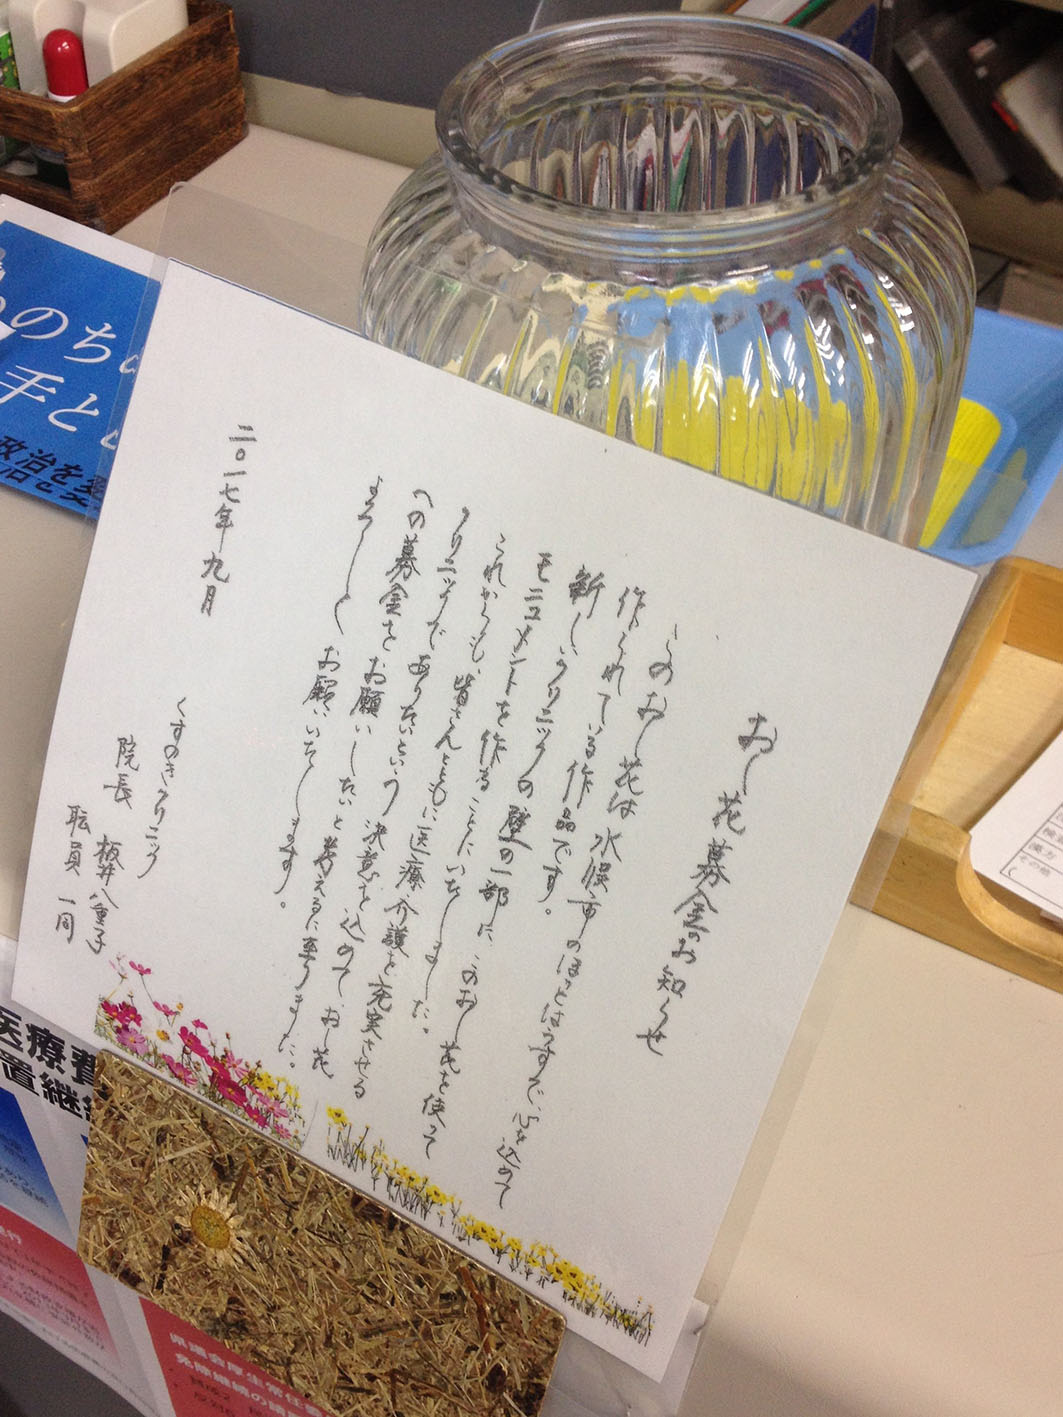 おし花募金のお知らせ
このおし花は水俣市のほっとはうすで、心を込めて
作られている作品です。
新しいクリニックの壁の一部にこのおし花を使って
モニュメントを作ることにいたしました。
これからも、皆さんとともに医療介護を充実させる
クリニックでありたいという決意を込めて、おし花
への募金をお願いしたいと考えるに至りました。
よろしくお願いいたします。
二〇一七年九月
くすのきクリニック
院長 板井八重子
職員一同
のち
手と
政治を
医療費
置継
県議会厚生常任
免除継続の請
その他